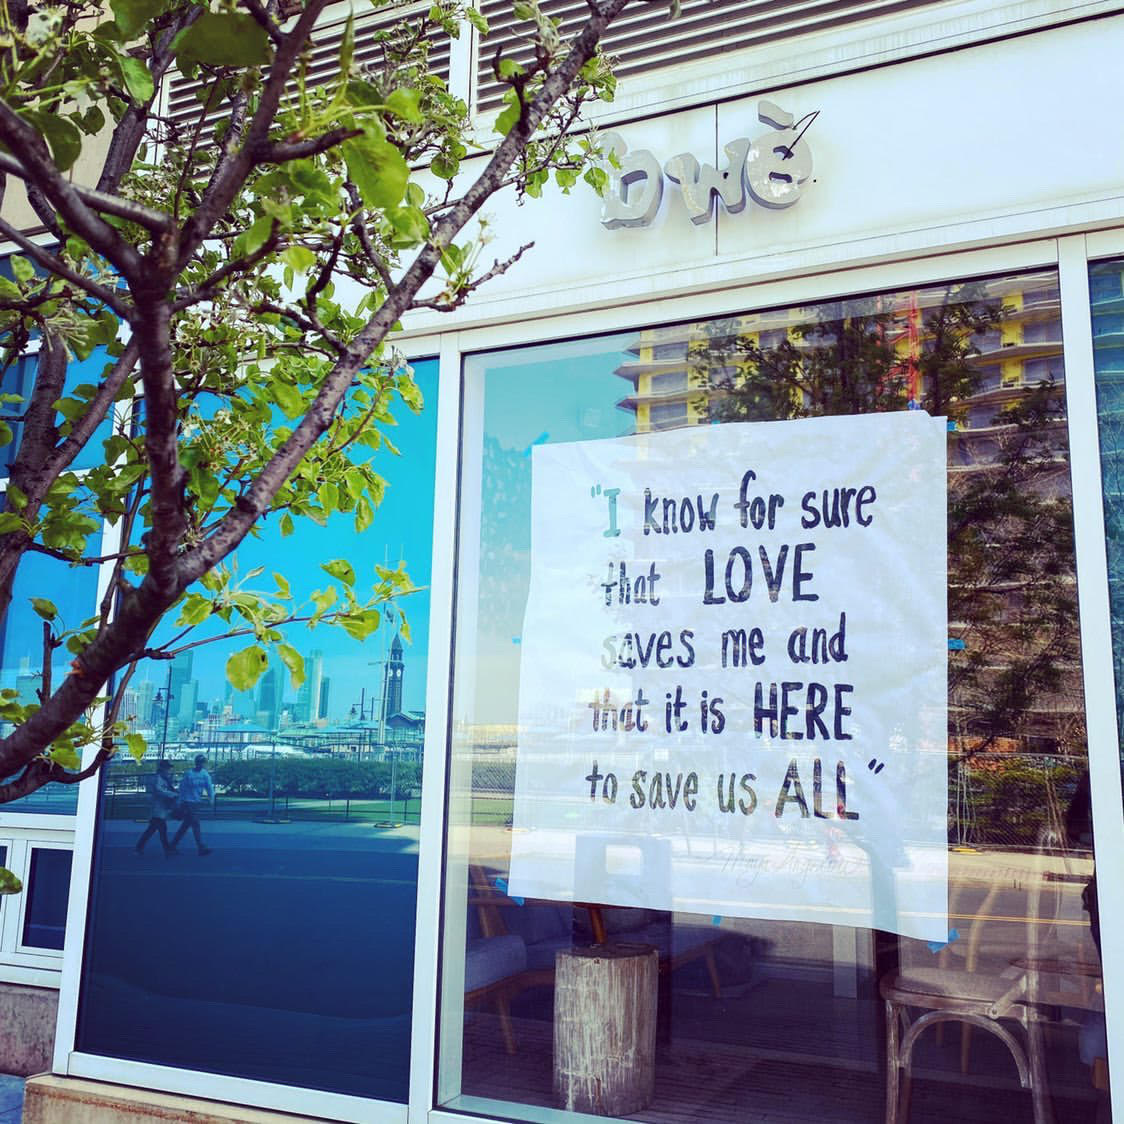 bwè
"I know for sure
that LOVE
saves me and
that it is HERE
to save us ALL"
Maya Angelou